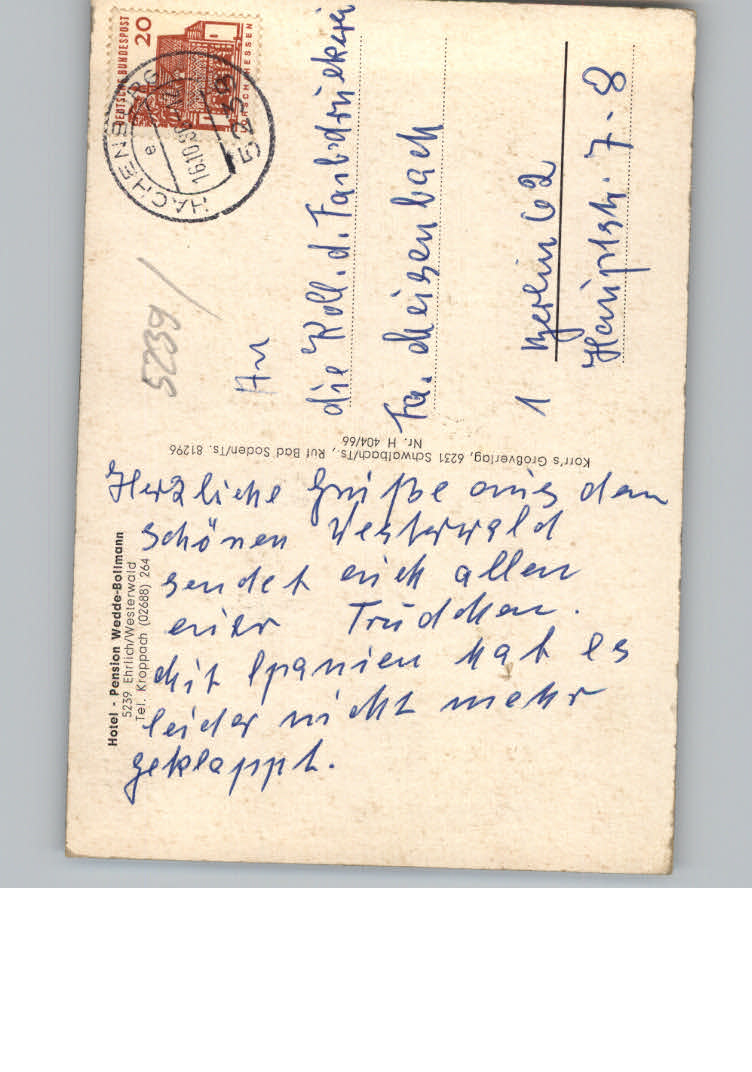 Hotel - Pension Wedde-Bollmann
5239 Ehrlich/Westerwald
Tel. Kroppach (02688) 264
Herzliche Grüße aus dem
schönen Westerwald
sendet euch allen
euer Trudchen.
Mit Spanien hat es
leider nicht mehr
geklappt.
Korr's Großverlag, 6231 Schwalbach/Ts., Ruf Bad Soden/Ts. 81296
Nr. H 404/66
5239/
DEUTSCHE BUNDESPOST
20
HACHENBURG
e
16.10.
5238
An
die Koll. d. Farbdruckerei
Fa. Meisenbach
1 Berlin 62
Hauptstr. 7-8